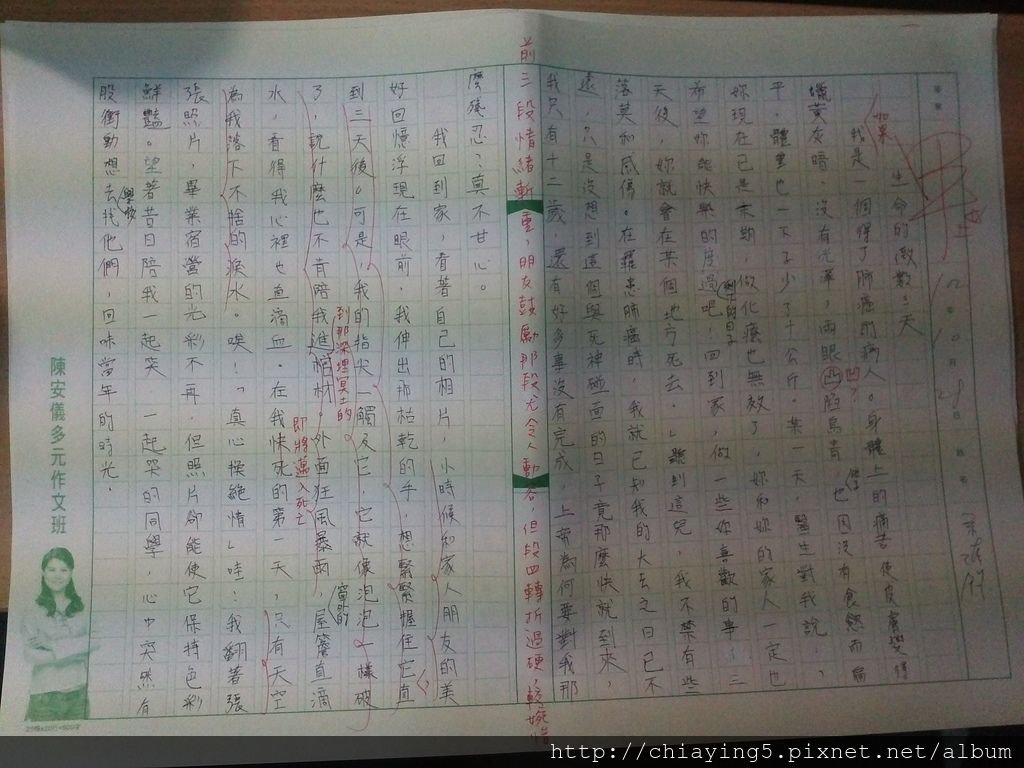 生命的倒數三天
如果
我是一個得了肺癌的病人。身體上的痛苦使皮膚變得
蠟黃灰暗,沒有光澤,兩眼凸陷烏青,也因沒有食慾而扁
凹?
平,體重也一下子少了十公斤。某一天,醫生對我說:「
妳現在已是末期,做化療也無效了,妳和妳的家人一定也
希望妳能快樂的度過吧!回到家,做一些妳喜歡的事,三
剩下的日子
天後,妳就會在某個地方死去。」聽到這兒,我不禁有些
落莫和感傷。在罹患肺癌時,我就已知我的大去之日已不
遠,只是沒想到這個與死神碰面的日子竟那麼快就到來,
我只有十二歲,還有好多事沒有完成,上帝為何要對我那
前三段情緒漸重,朋友鼓勵那段尤令人動容,但段四轉折過硬,較婉惜
麼殘忍?真不甘心。
我回到家,看著自己的相片,小時候和家人朋友的美
好回憶浮現在眼前,我伸出那枯乾的手,想緊緊握住它直
到三天後。可是,我的指尖一觸及它,它就像泡泡一樣破
到那深埋冥土的
窗外的
了,說什麼也不肯陪我進棺材。外面狂風暴雨,屋簷直滴
即將邁入死亡
水,看得我心裡也直滴血。在我快死的第一天,只有天空
為我落下不捨的淚水。唉!「真心換絕情」哇!我翻著張
張照片,畢業宿營的光彩不再,但照片卻能使它保持色彩
鮮豔。望著昔日陪我一起笑、一起哭的同學,心中突然有
學校
股衝動想去找他們,回味當年的時光。
陳安儀多元作文班
http://chiaying5.pixnet.net/album